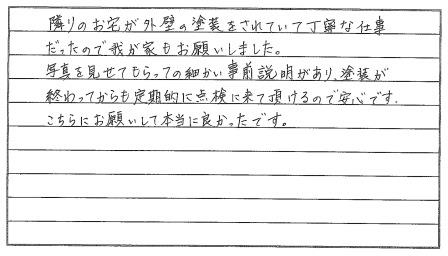 隣りのお宅が外壁の塗装をされていて丁寧な仕事
だったので我が家もお願いしました。
写真を見せてもらっての細かい事前説明があり、塗装が
終わってからも定期的に点検に来て頂けるので安心です.
こちらにお願いして本当に良かったです。